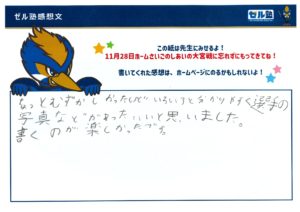 ゼル塾感想文
ゼル塾
この紙は先生にみせるよ！
11月28日ホームさいごのしあいの大宮戦に忘れずにもってきてね！
書いてくれた感想は、ホームページにのるかもしれないよ！
なっとむずかしかったけどいろいろとわかりやすく選手の
写真などがあったらいいと思いました。
書くのが楽しかったです。